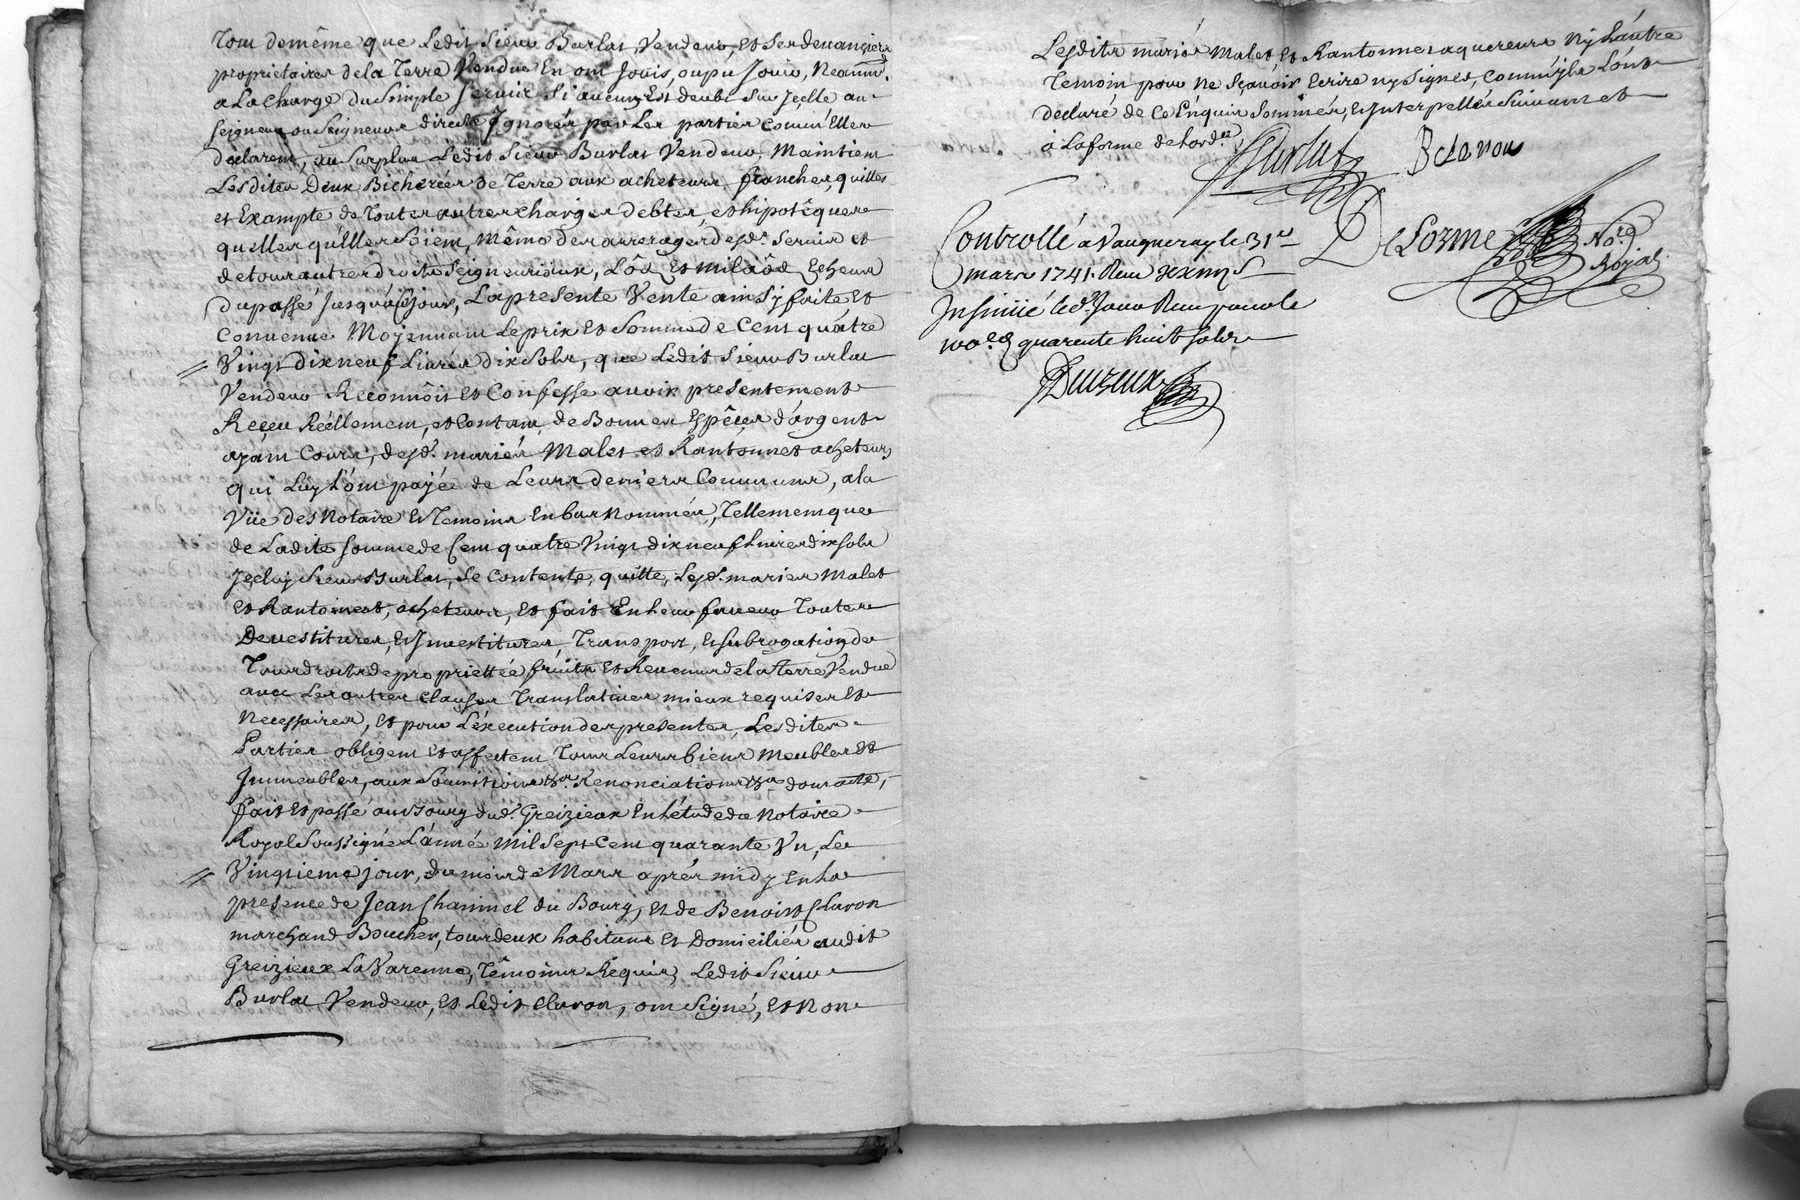 Tout demême que Ledit Sieur Burlat, Vendeur, Et Ses devanciers
propriétaires de la Terre Vendue En ont Jouis, ou pu Jouir, Neantmd.
a La Charge du Simple Servic Si aucun Est deubt Sur Jcelle au
Seigneur ou Seigneurs directs Jgnorés par Les parties comm'Elles
déclarent, au Surplus Ledit Sieur Burlat Vendeur, Maintient
Lesdites Deux Bicherées de Terre aux acheteurs, franches, quittes
et Exampte de Toutes autres charges debtes, et hipotêques
quelles qu'Elles Soient, Même des arrerages desd. Servis et
de tous autres droits Seigneuriaux, Lôd Et milaôd Echeus
du passé Jusqu'a Ce jour, La presente Vente ainsy faite Et
Convenue Moyennant Le prix Et Somme de Cent quâtre
Vingt dix neuf Livres dix Sols, que Ledit Sieur Burlat
Vendeur Reconnôit Et Confesse avoir presentement
Reçeu Réellement, et Contant, de Bonnes Espêces d'argent
ayant Cours, desd. mariés Malet et Rantonnet acheteurs
qui Luy L'ont payé de Leurs deniers Communs, a la
Vüe des Notaire Et Temoins En bas Nommés, Tellement que
de Ladite Somme de Cent quatre Vingt dix neuf Livres dix sols
Jceluy Sieur Burlat, Se Contente, quitte, Lesd. maries Malet
et Rantonnet, acheteurs, Et fait En Leur faveur Toutes
Devestitures, Et Jnvestitures, Transport, Et Subrogation de
Tous droits de propriettée fruits Et Revenus de la Terre Vendue
avec Les autres Clauses Translatives mieux requises Et
Necessaires, Et pour L'éxecution des presentes, Lesdites
Parties obligent Et affectent Tous Leurs biens Meubles Et
Jmmeubles, aux Soumissions &a. Renonciations &a dont acte,
fait Et passé au Bourg dud. Greizieux En L'étude du Notaire
Royal Soussigné L'anné Mil Sept Cent quarante Vn, Le
Vingtieme jour, du mois de Mars aprés midy En La
presence de Jean Chaninel du Bourg, Et de Benoist Claron
marchand Boucher, tous deux habitans Et Domiciliés audit
Greizieux La Varenne, Têmoins Requis, Ledit Sieur
Burlat Vendeur, Et Ledit Claron, ont Signé, Et Non
Lesdits mariés Malet, Et Rantonnet aquereurs Ny L'autre
Temoin pour Ne Sçavoir Ecrire ny Signer, Comm'jls L'ont
declaré de Ce Enquis Sommés, Et Jnterpellés Suivant et
à La forme de L'ord.ce
Burlat
B Claron
DeLorme No.re
Royal
Controllé a Vaugneray le 31e
mars 1741. Reçu
Insinüé led. Jour Reçu pour le
100.e d quarente huit sols